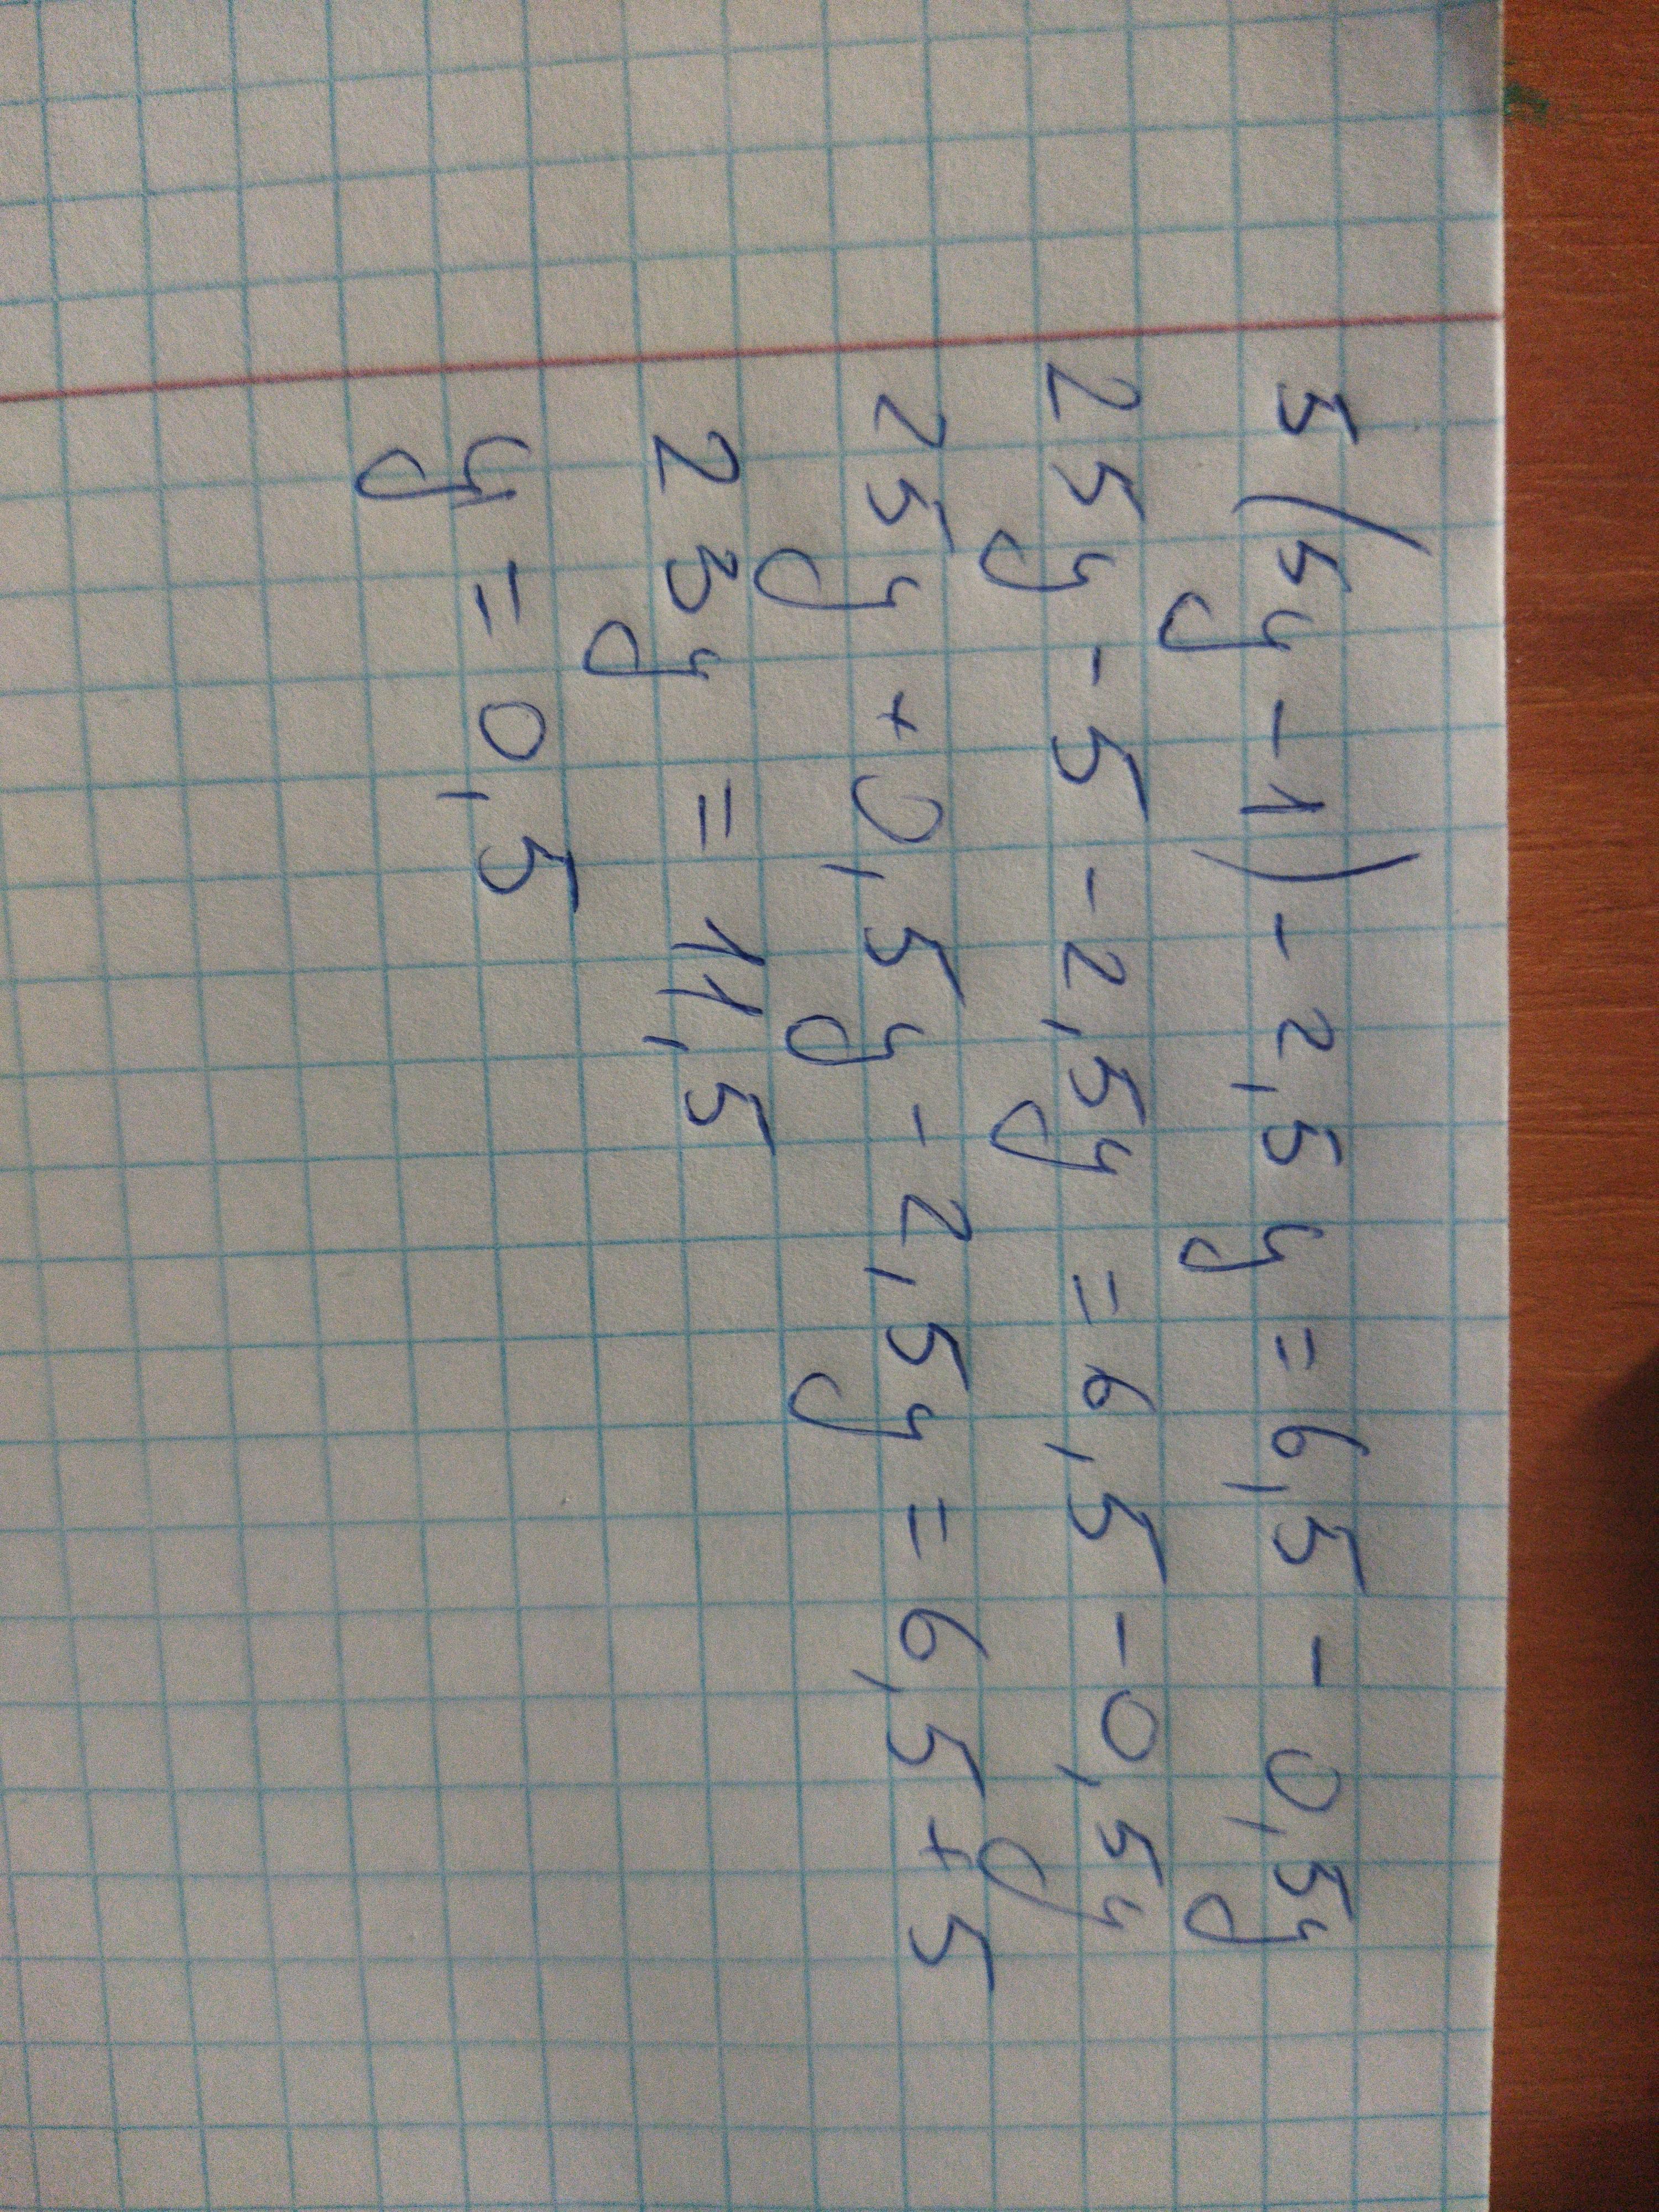 5(5y-1)-2,5y=6,5-0,5y
25y-5-2,5y=6,5-0,5y
25y+0,5y-2,5y=6,5+5
23y=11,5
y=0,5